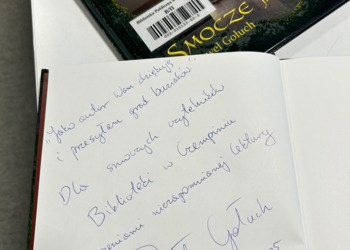 Biblioteka Publiczna
SMOCZE
Paweł Gołuch
"Jako autor Wam dziękuję
i przesyłam grad buziaków"
Dla smoczych czytelników
Biblioteki w Czempiniu
niezapomnianej lektury
Gołuch